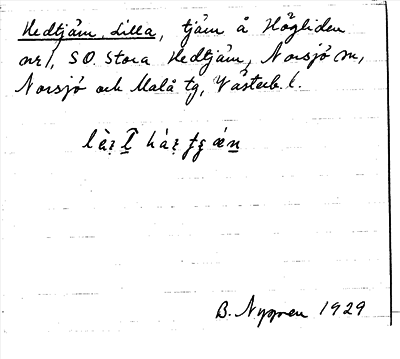 Hedtjärn, Lilla, tjärn å Högliden
nr 1, S O. Stora Hedtjärn, Norsjö sn,
Norsjö och Malå tg, Västerb. l.
B. Nygren 1929